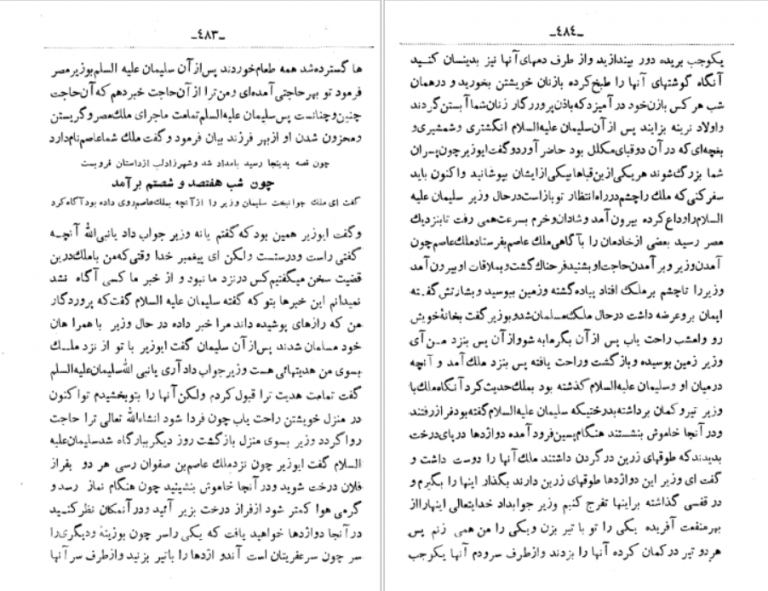 -۴۸۳-
ها گسترده شد همه طعام خوردند پس از آن سلیمان علیه السلم بوزیر مصر
فرمود تو بهر حاجتی آمده‌ای و من ترا از آن حاجت خبر دهم که آن حاجت
چنین و چنانست پس سلیمان علیه السلم تمامت ماجرای ملک مصر و گریستن
و محزون شدن او از بهر فرزند بیان فرمود و گفت ملک شما عاصم نام دارد
چون قصه بدینجا رسید بامداد شد و شهرزاد لب از داستان فرو بست
چون شب هفتصد و شصتم برآمد
گفت ای ملک جوانبخت سلیمان وزیر را از آنچه بملک عاصم روی داده بود آگاه کرد
و گفت ایوزیر همین بود که گفتم یا نه وزیر جواب داد یا نبی الله آنچه
گفتی راست و درستست ولکن ای پیغمبر خدا وقتی که من با ملک در این
قضیت سخن میگفتیم کس در نزد ما نبود و از خبر ما کسی آگاه نشد
نمیدانم این خبرها بتو که گفته سلیمان علیه السلام گفت که پروردگار
من که رازهای پوشیده داند مرا خبر داده در حال وزیر با همراهان
خود مسلمان شدند پس از آن سلیمان گفت ایوزیر با تو از نزد ملک
بسوی من هدیتهائی هست وزیر جواب داد آری یا نبی الله سلیمان علیه السلم
گفت تمامت هدیت ترا قبول کردم ولکن آنها را بتو بخشیدم تو اکنون
در منزل خویشتن راحت یاب چون فردا شود انشاءالله تعالی ترا حاجت
روا گردد وزیر بسوی منزل بازگشت روز دیگر ببارگاه شد سلیمان علیه
السلام گفت ایوزیر چون نزد ملک عاصم بن صفوان رسی هر دو بفراز
فلان درخت شوید و در آنجا خاموش بنشینید چون هنگام نماز رسد و
گرمی هوا کمتر شود از فراز درخت بزیر آئید و در آنمکان نظر کنید
در آنجا دو اژدها خواهید یافت که یکی را سر چون بوزینه و دیگری را
سر چون سر عفریتان است آندو اژدها را با تیر بزنید و از طرف سر آنها
-۴۸۴-
یکوجب بریده دور بیندازید و از طرف دمهای آنها نیز بدینسان کنید
آنگاه گوشتهای آنها را طبخ کرده بازنان خویشتن بخورید و در همان
شب هر کس با زن خود در آمیزد که باذن پروردگار زنان شما آبستن گردند
و اولاد نرینه بزایند پس از آن سلیمان علیه السلام انگشتری و شمشیری و
بغچه‌ای که در آن دو قبای مکلل بود حاضر آورد و گفت ایوزیر چون پسران
شما بزرگ شوند هر یکی از این قباها بیکی از ایشان بپوشانید و اکنون باید
سفر کنی که ملک را چشم در راه انتظار تو باز است در حال وزیر سلیمان علیه
السلام را وداع کرده بیرون آمد و شادان و خرم بسرعت همی رفت تا بنزدیک
مصر رسید بعضی از خادمان را با آگاهی ملک عاصم بفرستاد ملک عاصم چون
آمدن وزیر و بر آمدن حاجت او بشنید فرحناک گشت و بملاقات او بیرون آمد
وزیر را تا چشم بر ملک افتاد پیاده گشته و زمین ببوسید و بشارتش گفته
ایمان برو عرضه داشت در حال ملک مسلمان شد و بوزیر گفت بخانهٔ خویش
رو و امشب راحت یاب پس از آن بگرمابه شو و از آن پس بنزد من آی
وزیر زمین بوسیده و بازگشت و راحت یافته پس بنزد ملک آمد و آنچه
در میان او و سلیمان علیه السلام گذشته بود بملک حدیث کرد آنگاه ملک با
وزیر تیر و کمان برداشته بدرختیکه سلیمان علیه السلام گفته بود فراز رفتند
و در آنجا خاموش بنشستند هنگام پسین فرود آمده دو اژدها در پای درخت
بدیدند که طوقهای زرین در گردن داشتند ملک آنها را دوست داشت و
گفت ای وزیر این دو اژدها طوقهای زرین دارند بگذار اینها را بگیرم و
در قفسی گذاشته بر اینها تفرج کنیم وزیر جوابداد خدایتعالی اینها را از
بهر منفعت آفریده یکی را تو با تیر بزن و یکی را من همی زنم پس
هر دو تیر در کمان کرده آنها را بزدند و از طرف سر و دم آنها یکوجب